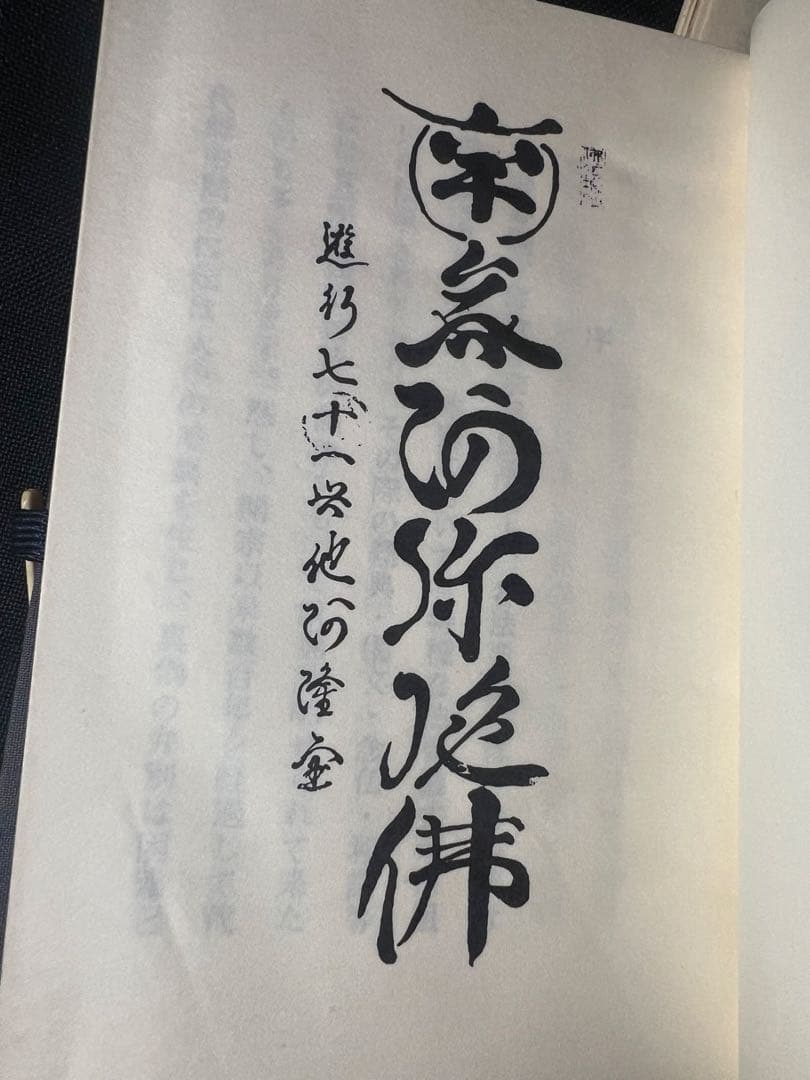 南無阿弥陀佛
遊行七十一世他阿隆